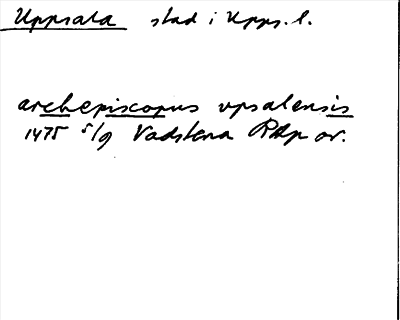 Uppsala stad i Upps. l.
archepiscopus vpsalensis
1475 5/9 Vadstena RAp or.